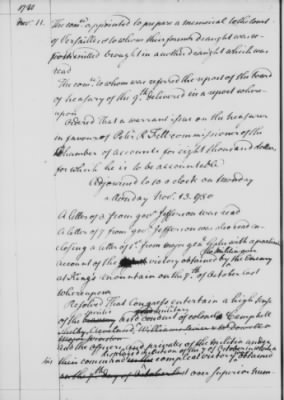 1780
Nov. 11.
The com.ee appointed to prepare a memorial to the court
of Versailles & to whom their former draught was re-
committed brought in another draught which was
read
The com.ee to whom was referred the report of the board
of treasury of the 9th delivered in a report where-
upon
Ordered That a warrant issue on the treasurer
in favour of Rob. A. Tell commissioner of the
Chamber of accounts for eight thousand dollars
for which he is to be accountable
Adjourned to 10 o clock on monday
Monday Nov. 13. 1780
A letter of 3 from gov.r Jefferson was read
A letter of 7 from gov.r Jefferson was also read en-
closing a letter of 1st. from major gen. Gates with a particular
account of the victory obtained by the Enemy
at Kings mountain on the 7th of October last
whereupon
Resolved That Congress entertain a high sense
of the spirited and military conduct of colonels Campbell
Shelby, Cleveland, Williams
and the officers and privates of the militia under
displayed in action of the 7 of October in which a
their command compleat victory obtained
over superior num-